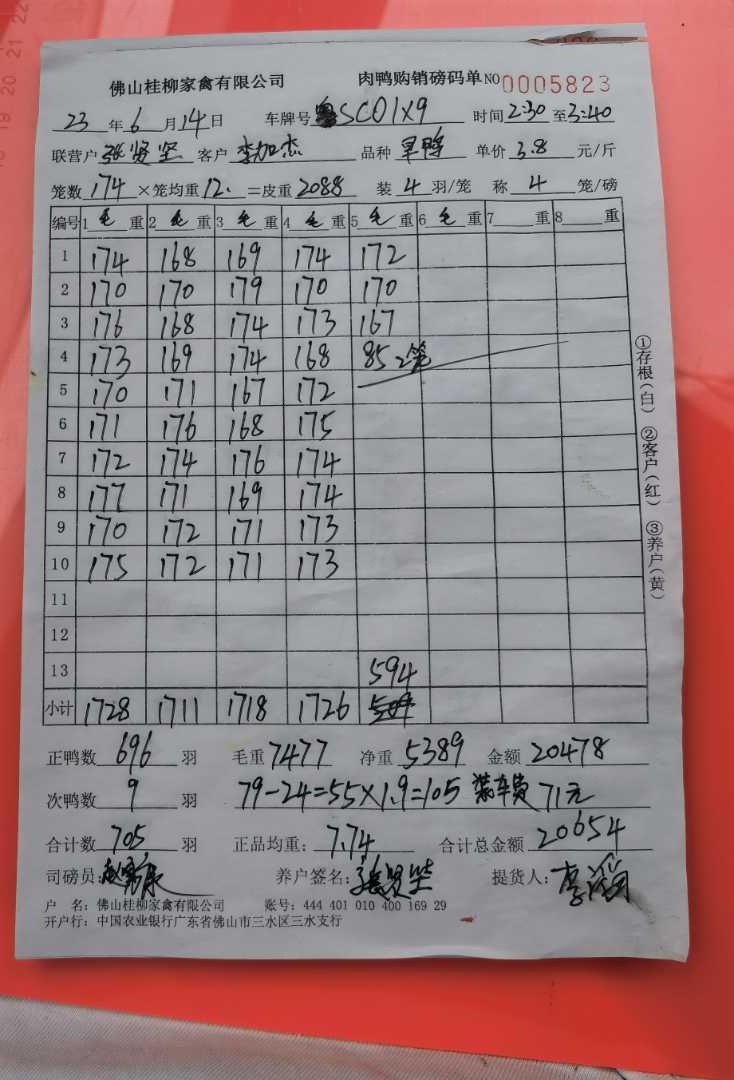 佛山桂柳家禽有限公司 肉鸭购销磅码单 NO 0005823
23 年 6 月 14 日 车牌号 粤SC01X9 时间 2:30 至 3:40
联营户 张贤坚 客户 李加杰 品种 旱鸭 单价 3.8 元/斤
笼数 174 ×笼均重 12. =皮重 2088 装 4 羽/笼 称 4 笼/磅
编号 1 毛 重 2 毛 重 3 毛 重 4 毛 重 5 毛 重 6 毛 重 7 重 8 重
1 174 168 169 174 172
2 170 170 179 170 170
3 176 168 174 173 167
4 173 169 174 168 85 2笼
5 170 171 167 172
6 171 176 168 175
7 172 174 176 174
8 177 171 169 174
9 170 172 171 173
10 175 172 171 173
11
12
13 594
小计 1728 1711 1718 1726
正鸭数 696 羽 毛重 7477 净重 5389 金额 20478
次鸭数 9 羽 79-24=55×1.9=105 装车费 71元
合计数 705 羽 正品均重: 7.74 合计总金额 20654
司磅员: 养户签名: 张贤坚 提货人: 李
户 名: 佛山桂柳家禽有限公司 账号: 444 401 010 400 169 29
开户行: 中国农业银行广东省佛山市三水区三水支行
①存根(白) ②客户(红) ③养户(黄)